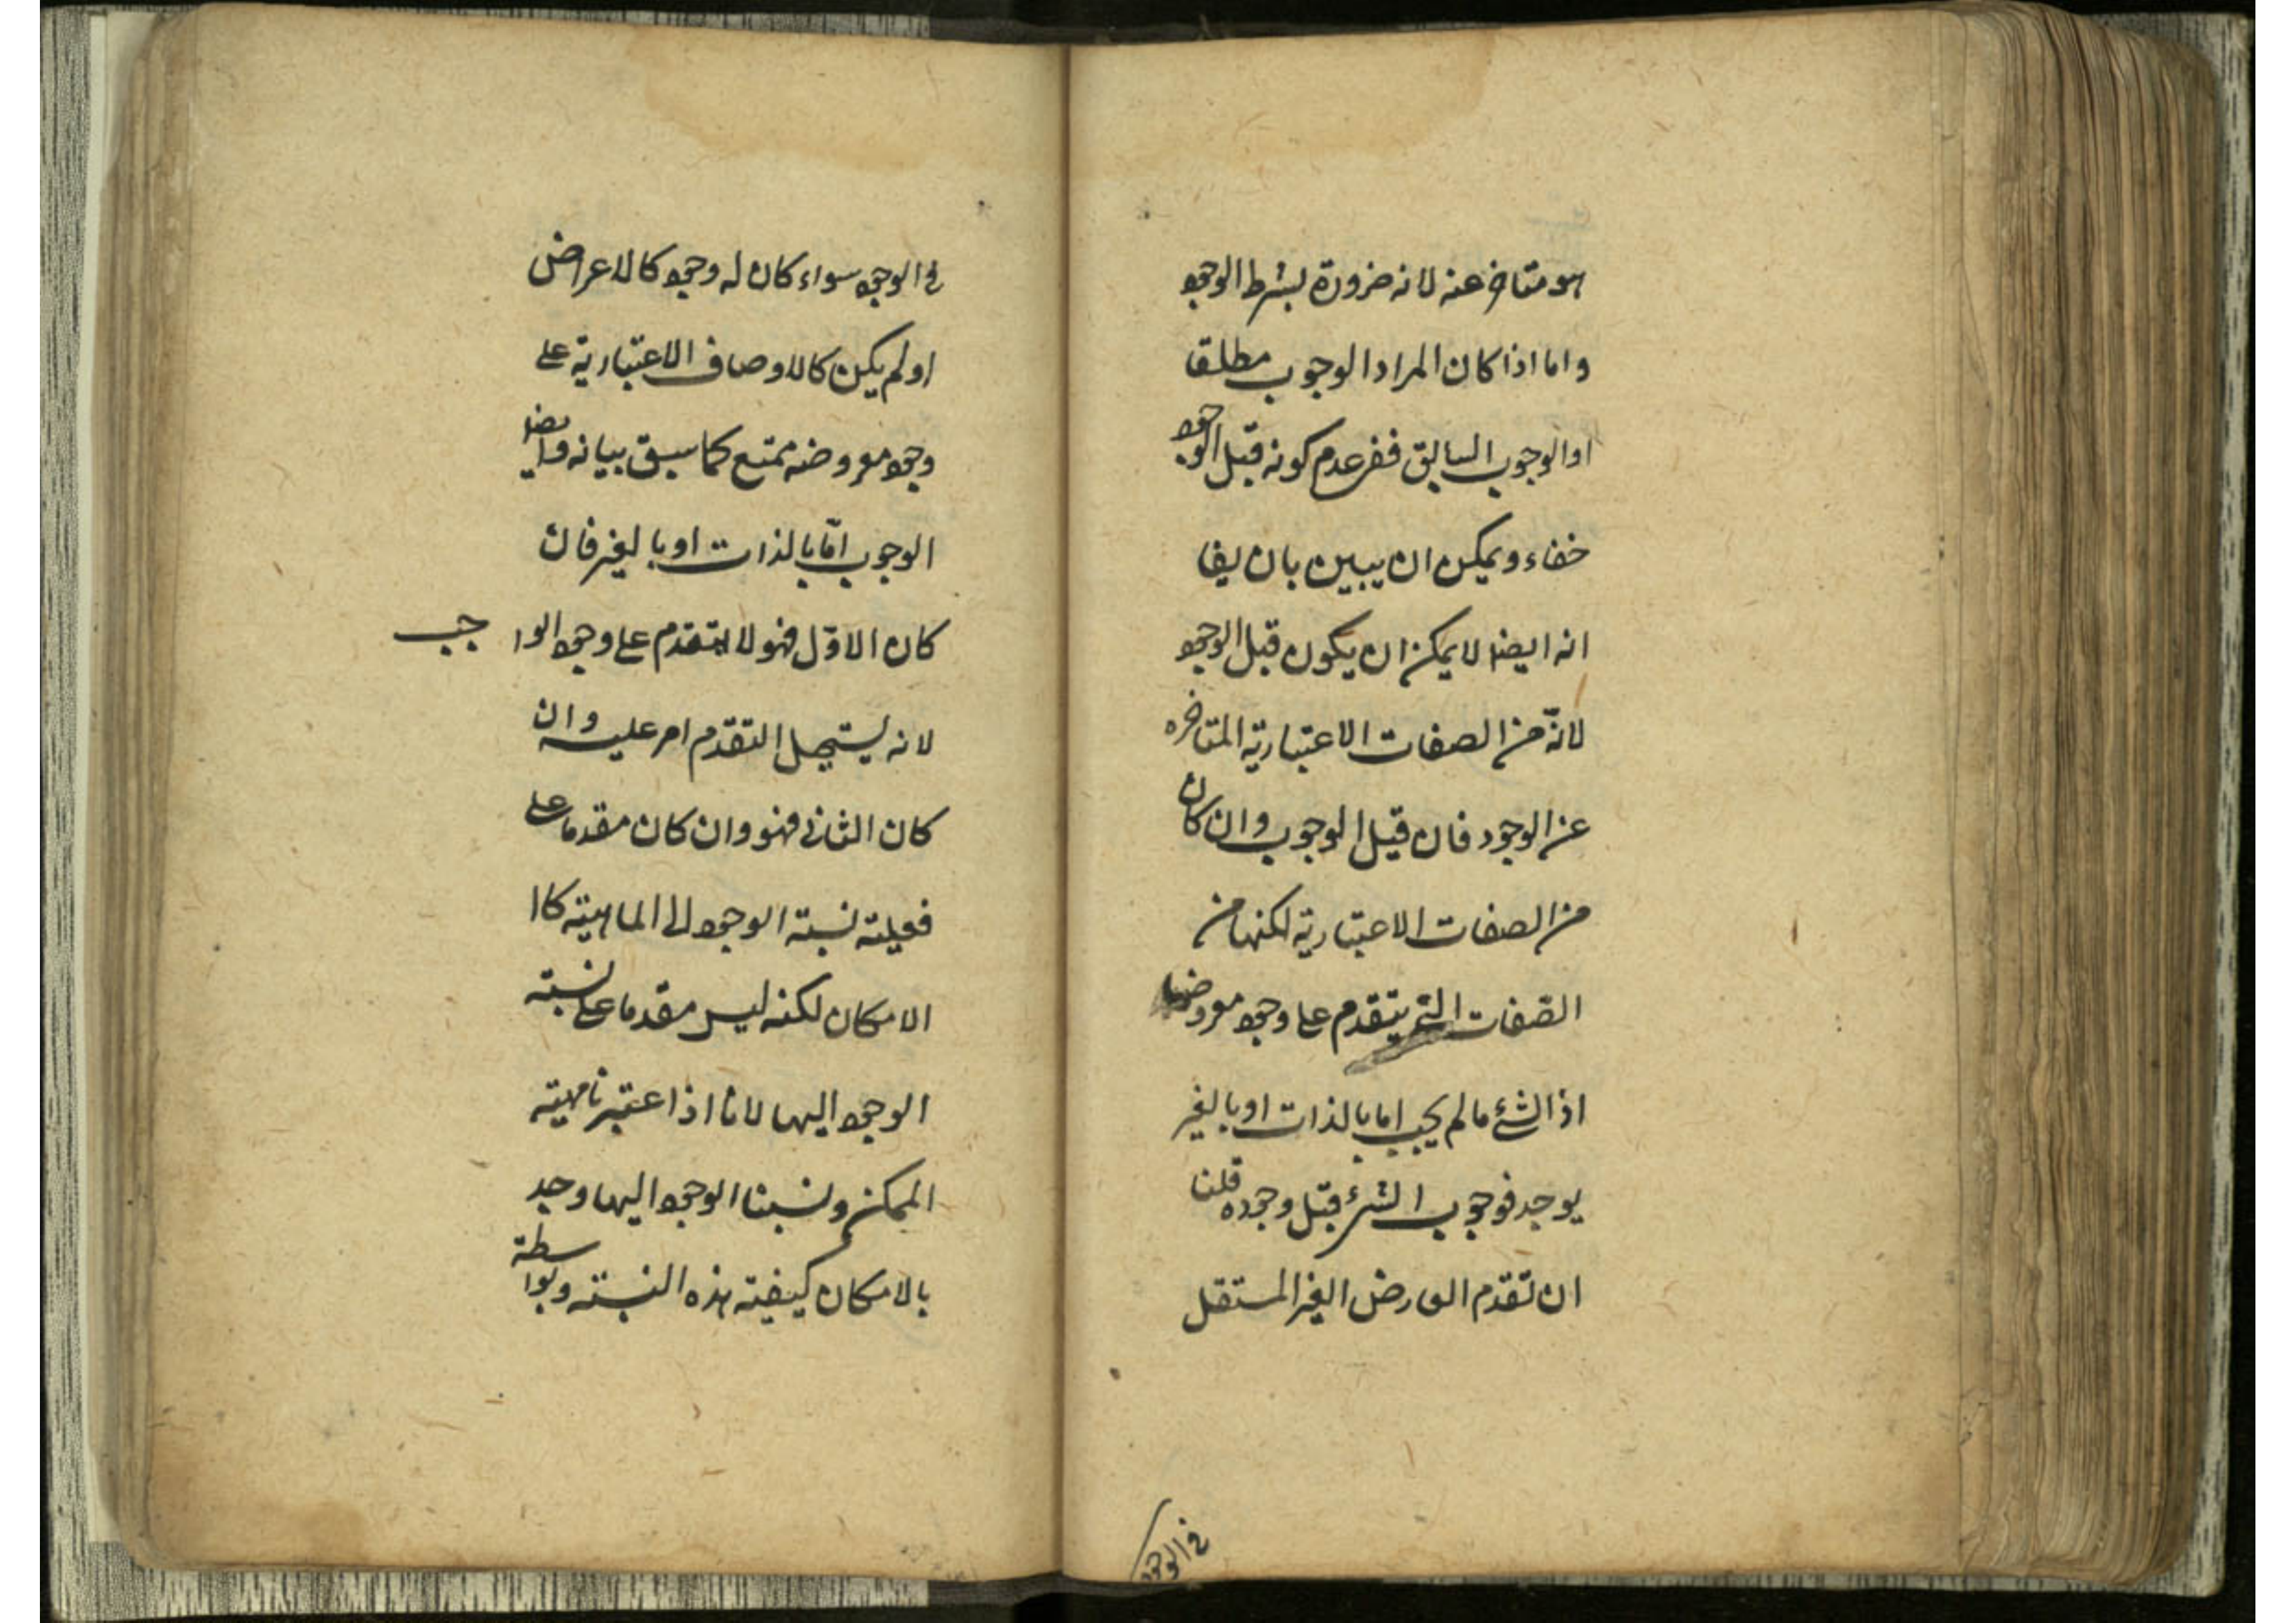 هو متاخر عنه لانه ضرورة بشرط الوجود
واما اذا كان المراد الوجوب مطلقا
او الوجوب السابق ففى عدم كونه قبل الوجود
خفاء ويمكن ان يبين بان يقا
انه ايضا لا يمكن ان يكون قبل الوجود
لانّه من الصفات الاعتبارية المتاخره
عن الوجود فان قيل الوجوب وان كان
من الصفات الاعتبارية لكنها من
الصفات التى يتقدم على وجود معروضها
اذ الشئ ما لم يجب اما بالذات او بالغير
يوجد فوجوب الشئ قبل وجوده قلنا
ان تقدم العارض الغير المستقل
فى الوجود
فى الوجود سواء كان له وجود كالاعراض
او لم يكن كالاوصاف الاعتبارية على
وجود معروضه ممتنع كما سبق بيانه وايضا
الوجوب امّا بالذات او بالغير فان
كان الاوّل فهو لا يتقدم على وجود الواجب
لانه يستحيل التقدم امر عليه وان
كان الثانى فهو وان كان مقدما على
فعلية نسبة الوجود الى الماهية كا
الامكان لكنه ليس مقدما على نسبة
الوجود اليها لانا اذا اعتبرنا مهية
الممكن ونسبنا الوجود اليها وجد
بالامكان كيفية هذه النسبة وبواسطة